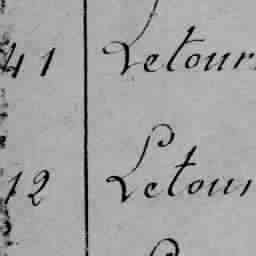 41 Letour
12 Letour